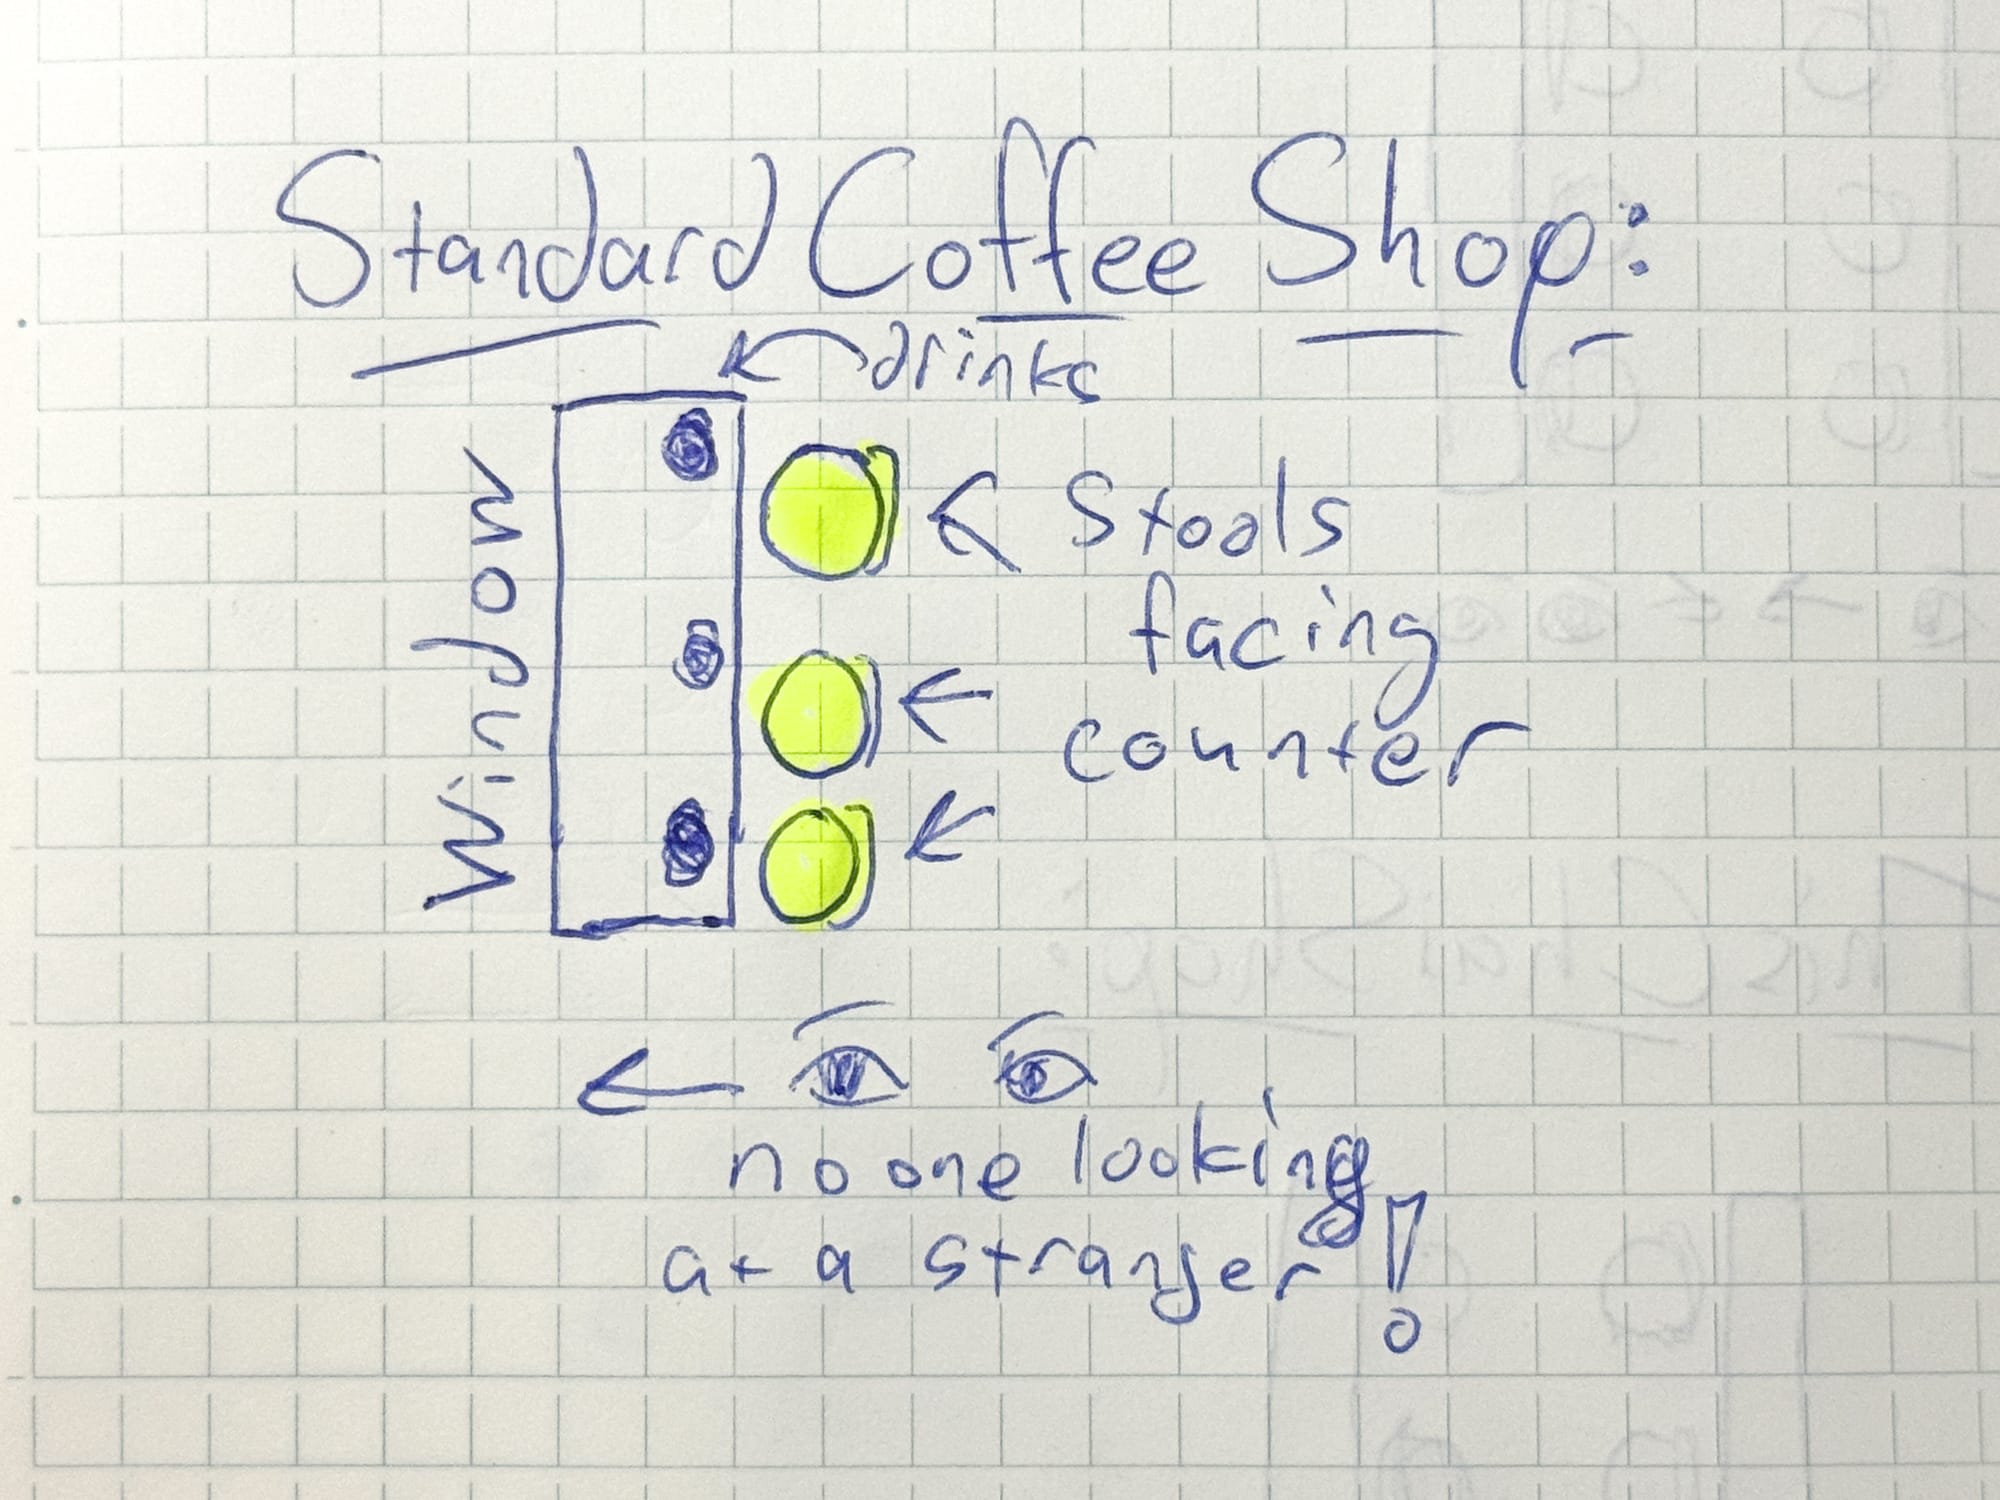 Standard Coffee Shop:
drinks
Window
Stools
facing
counter
no one looking
at a stranger!